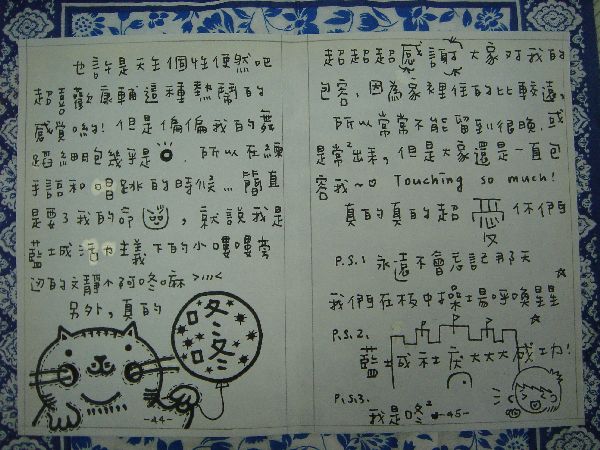 也許是天生個性使然吧
超喜歡康輔這種熱鬧的
感覺喲! 但是偏偏我的舞
蹈細胞幾乎是0. 所以在練
手語和唱跳的時候... 簡直
是要了我的命, 就說我是
藍士城活力主義下的小嘍嘍旁
邊的文靜小阿咚嘛 >///<
另外, 真的
咚咚
-44-
超超超超感謝大家對我的
包容, 因為家裡住的比較遠,
所以常常不能留到很晚, 或
是常²出未, 但是大家還是一直包
容我~ Touching so much!
真的真的超 你們
P.S.1 永遠不會忘記那天
我們在板中操場呼喚星星
P.S.2.
藍士城社庆大大大成功!
P.S.3.
我是咚² -45-